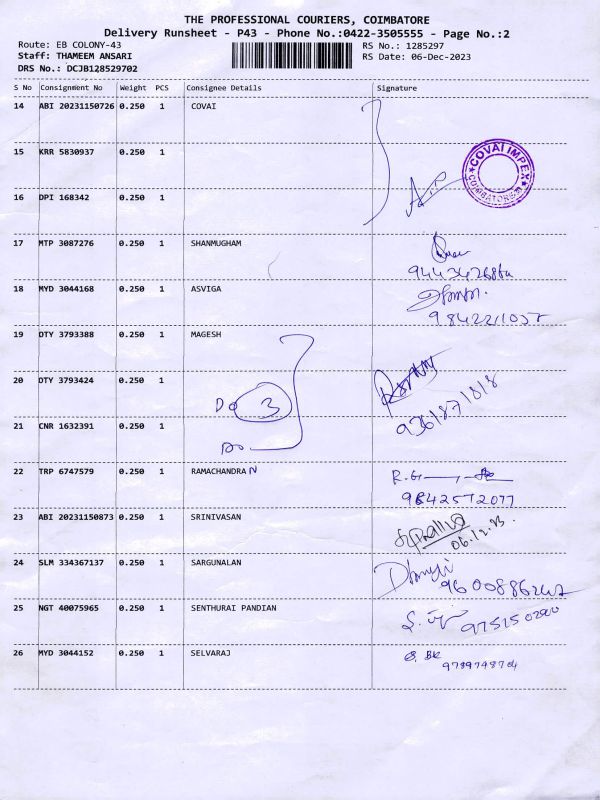 THE PROFESSIONAL COURIERS, COIMBATORE
Delivery Runsheet - P43 - Phone No.:0422-3505555 - Page No.:2
Route: EB COLONY-43 RS No.: 1285297
Staff: THAMEEM ANSARI RS Date: 06-Dec-2023
DRS No.: DCJB128529702
S No Consignment No Weight PCS Consignee Details Signature
14 ABI 20231150726 0.250 1 COVAI
15 KRR 5830937 0.250 1
COVAI IMPEX
COIMBATORE
16 DPI 168342 0.250 1
17 MTP 3087276 0.250 1 SHANMUGHAM
18 MYD 3044168 0.250 1 ASVIGA
19 DTY 3793388 0.250 1 MAGESH
20 DTY 3793424 0.250 1
3
9361871818
21 CNR 1632391 0.250 1
22 TRP 6747579 0.250 1 RAMACHANDRAN
9842572077
23 ABI 20231150873 0.250 1 SRINIVASAN
06.12.23.
24 SLM 334367137 0.250 1 SARGUNALAN
25 NGT 40075965 0.250 1 SENTHURAI PANDIAN
26 MYD 3044152 0.250 1 SELVARAJ
9789748704